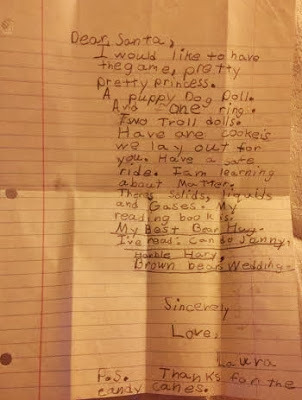 Dear, Santa,
I would like to have
the game, pretty
pretty princess.
A puppy Dog Doll.
And one ring.
Two Troll dolls.
Have are cookeis
we lay out for
you. Have a safe
ride. I am learning
about Matter.
Thers solids, liquids
and Gases. My
reading book is:
My Best Bear Hug.
I've read: Can do Janny.
Harry.
Brown bear Wedding.
Sincerely
Love,
Laura
P.S. Thanks for the
candy canes.